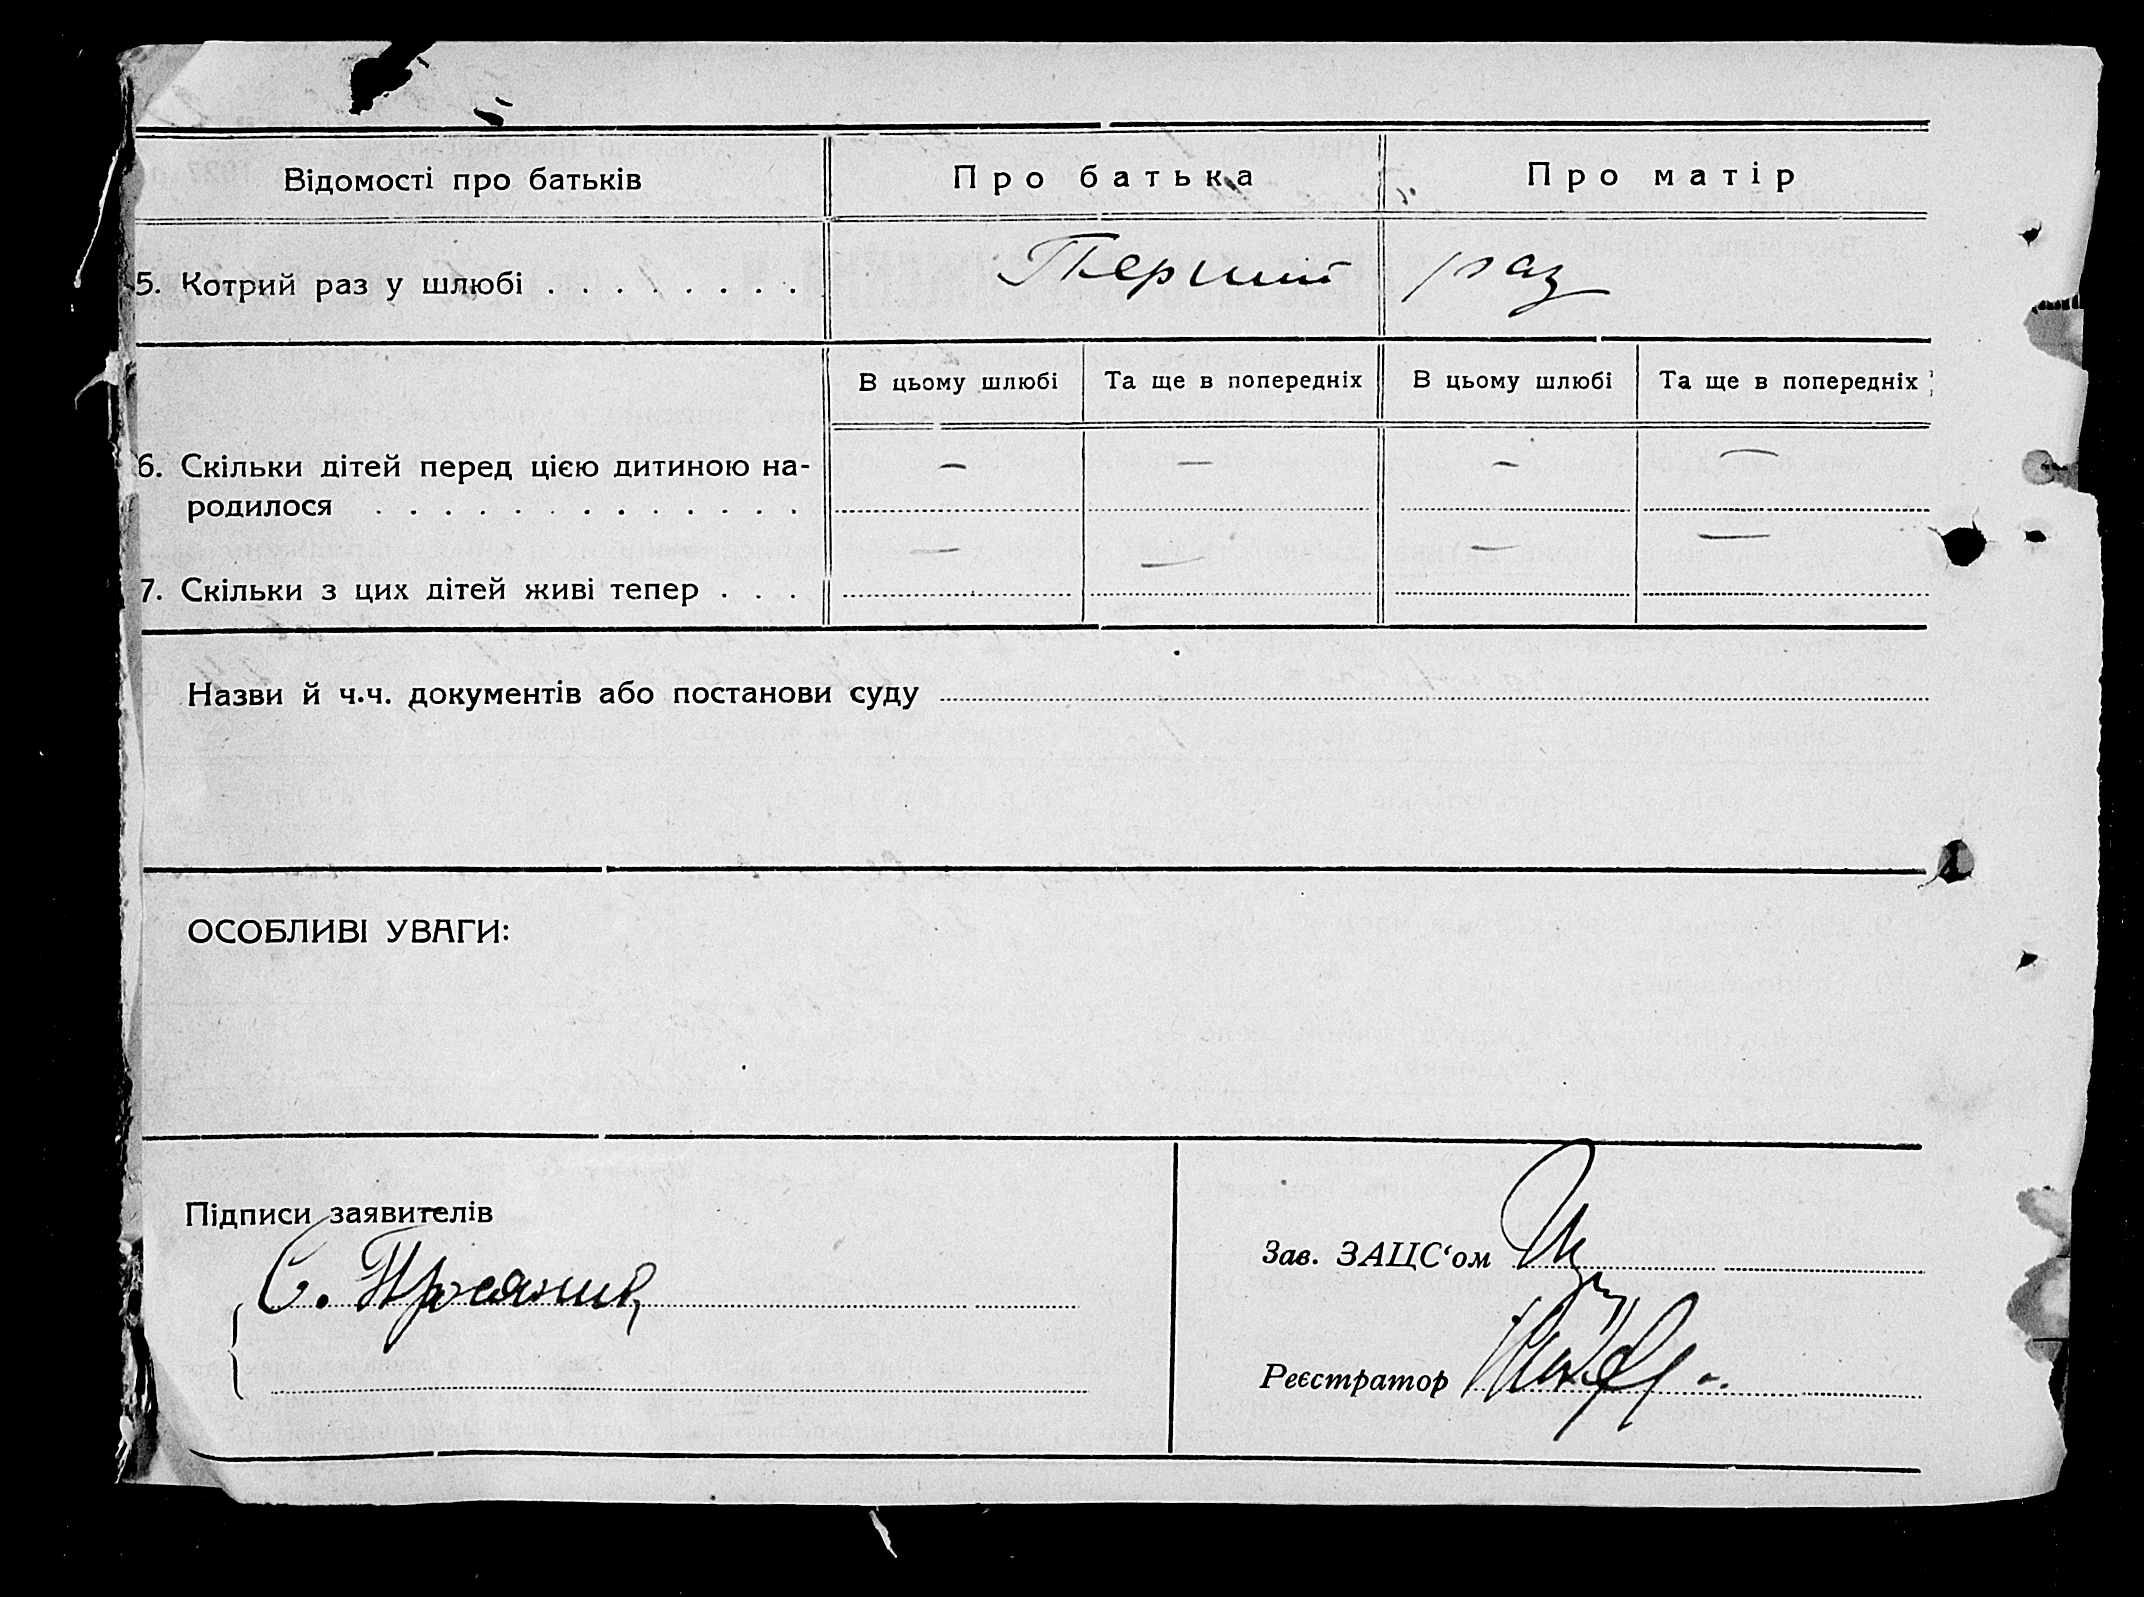 Відомості про батьків Про батька Про матір
5. Котрий раз у шлюбі . . . . . . . . Перший раз
В цьому шлюбі Та ще в попередніх В цьому шлюбі Та ще в попередніх
6. Скільки дітей перед цією дитиною на- — — — —
родилося . . . . . . . . . . . . .
— — — —
7. Скільки з цих дітей живі тепер . . .
Назви й ч.ч. документів або постанови суду
ОСОБЛИВІ УВАГИ:
Підписи заявителів
Зав. ЗАЦС‘ом
С.
Реєстратор